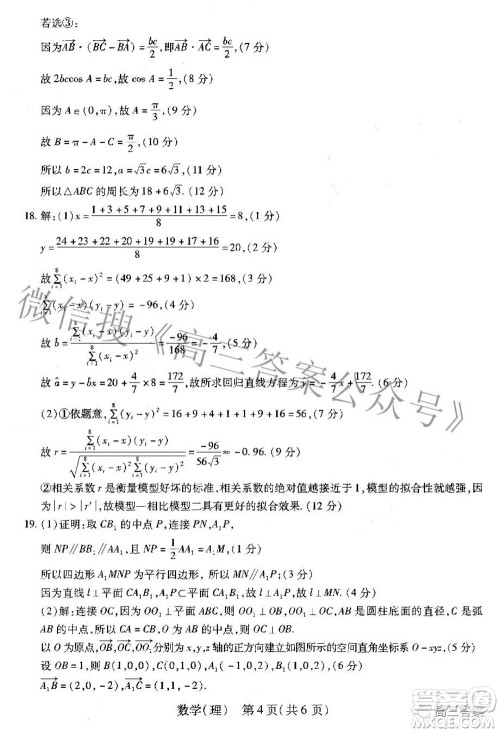 若选③:
因为$\overrightarrow{AB}\cdot(\overrightarrow{BC}-\overrightarrow{BA})=\frac{bc}{2}$,即$\overrightarrow{AB}\cdot\overrightarrow{AC}=\frac{bc}{2}$,(7分)
故 2bccos A=bc,故 cos A=$\frac{1}{2}$,(8分)
因为 A∈(0,π),故 A=$\frac{\pi}{3}$,(9分)
故 B=π-A-C=$\frac{\pi}{2}$,(10分)
所以 b=2c=12,a=$\sqrt{3}$c=6$\sqrt{3}$,(11分)
所以△ABC 的周长为 18+6$\sqrt{3}$.(12分)
18.解:(1)x=$\frac{1+3+5+7+9+11+13+15}{8}$=8,(1分)
y=$\frac{24+23+22+20+20+19+16+16}{8}$=20,(2分)
故$\sum_{i=1}^{8}(x_i-x)^2$=(49+25+9+1)×2=168,(3分)
故$\sum_{i=1}^{8}(x_i-x)(y_i-y)$=-96,(4分)
故 $\hat{b}=\frac{\sum_{i=1}^{8}(x_i-x)(y_i-y)}{\sum_{i=1}^{8}(x_i-x)^2}=\frac{-96}{168}=-\frac{4}{7}$,(5分)
故 $\hat{a}$=y-bx=20+$\frac{4}{7}$×8=$\frac{172}{7}$,故所求回归直线方程为 y=-$\frac{4}{7}$x+$\frac{172}{7}$.(6分)
(2)①依题意,$\sum_{i=1}^{8}(y_i-y)^2$=16+9+4+1+16+16=62,(7分)
故 r=$\frac{\sum_{i=1}^{8}(x_i-x)(y_i-y)}{\sqrt{\sum_{i=1}^{8}(x_i-x)^2\sum_{i=1}^{8}(y_i-y)^2}}=\frac{-96}{56\sqrt{3}}$≈-0.96.(9分)
②相关系数 r 是衡量模型好坏的标准,相关系数的绝对值越接近于 1,模型的拟合性就越强,因
为|r|>|r′|,故模型一比模型二具有更好的拟合效果.(12分)
19.(1)证明:取 CB₁ 的中点 P,连接 NP,A₁P,
则 NP∥BB₁∥AA₁,且 NP=$\frac{1}{2}$AA₁=A₁M,
所以四边形 A₁MNP 为平行四边形.(3分)
因为直线 l⊥平面 CA₁B₁,故 l⊥A₁P,而 MN∥A₁P,故 l⊥MN.(6分)
(2)解:连接 OC,因为 OO₁⊥平面 ABC,故 OO₁⊥OC,因为 AB 为圆柱底面的直径,C 是弧
AB 的中点,所以 CA=CB,故 CO⊥AB.
以 O 为原点,$\overrightarrow{OC}$,$\overrightarrow{OB}$,$\overrightarrow{OO_1}$为 x,y,z 轴的正方向建立如图所示的空间直角坐标系 O-xyz,(7分)
设 OB=1,则 B(0,1,0),C(1,0,0),
数学(理) 第4页(共6页)
微信搜《高三答案公众号》
高三答案